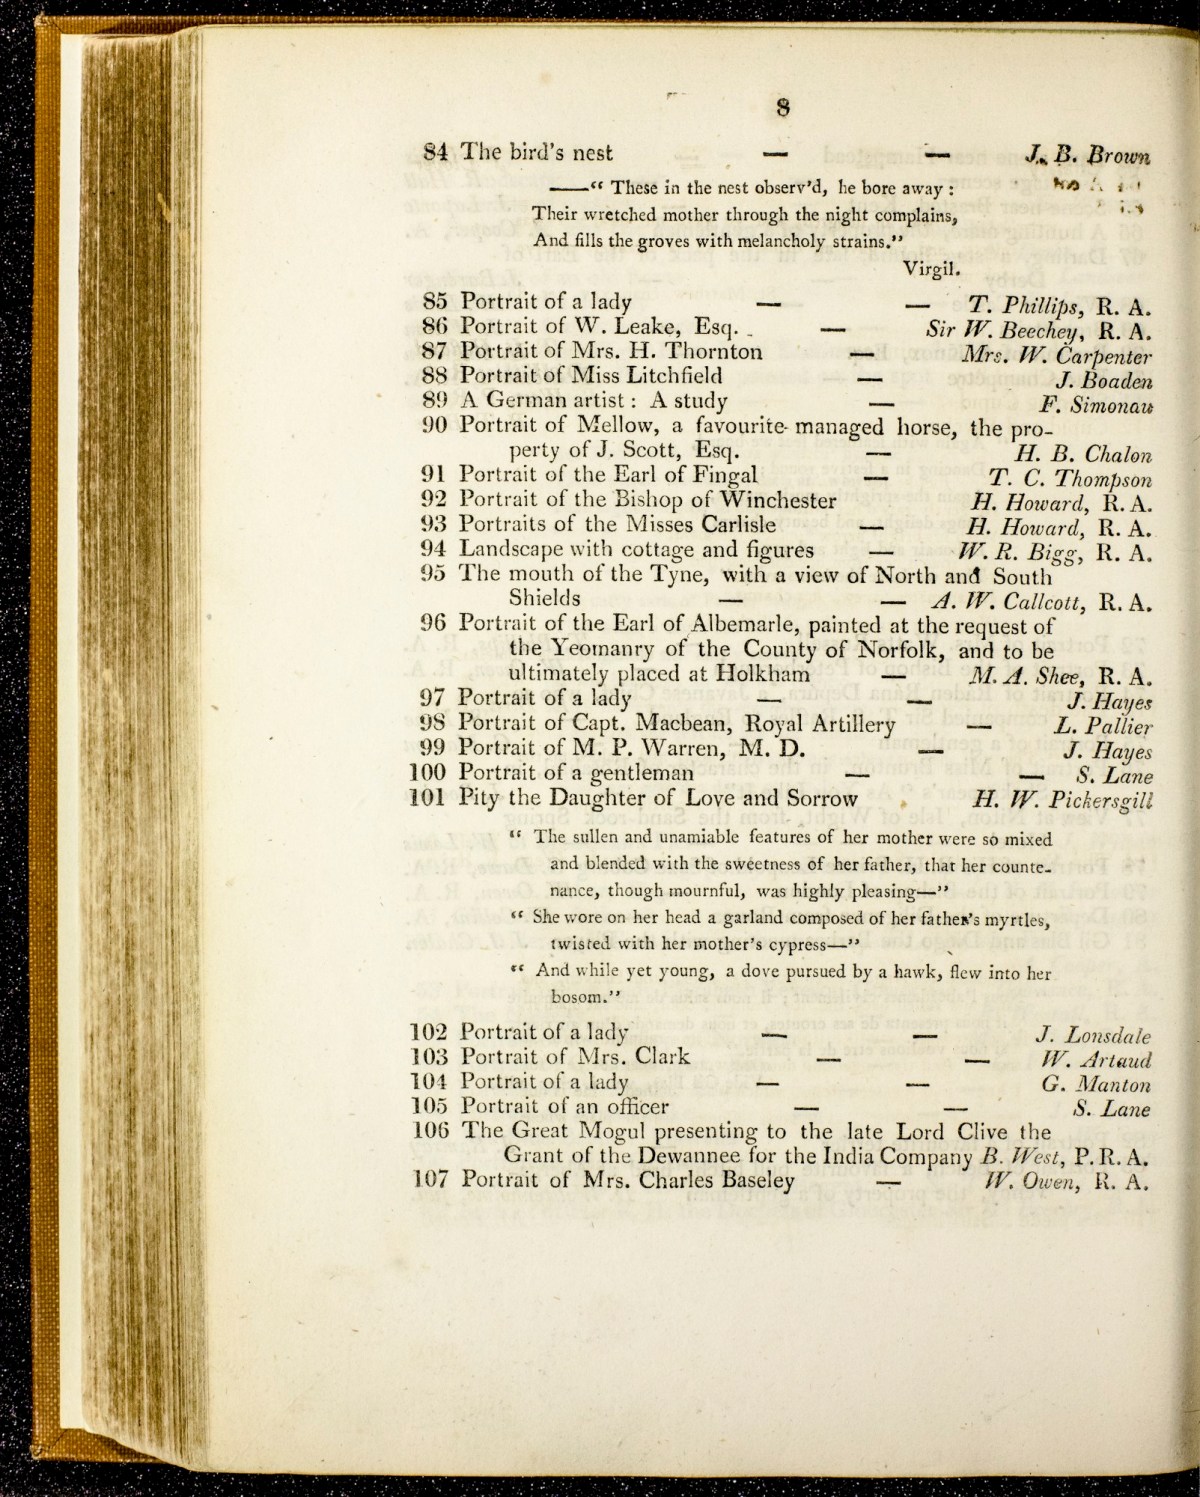 8
84 The bird's nest — — J. B. Brown
——“ These in the nest observ'd, he bore away :
Their wretched mother through the night complains,
And fills the groves with melancholy strains.”
Virgil.
85 Portrait of a lady — — T. Phillips, R. A.
86 Portrait of W. Leake, Esq. — Sir W. Beechey, R. A.
87 Portrait of Mrs. H. Thornton — Mrs. W. Carpenter
88 Portrait of Miss Litchfield — J. Boaden
89 A German artist : A study — F. Simonau
90 Portrait of Mellow, a favourite managed horse, the pro-
perty of J. Scott, Esq. — H. B. Chalon
91 Portrait of the Earl of Fingal — T. C. Thompson
92 Portrait of the Bishop of Winchester H. Howard, R. A.
93 Portraits of the Misses Carlisle — H. Howard, R. A.
94 Landscape with cottage and figures — W. R. Bigg, R. A.
95 The mouth of the Tyne, with a view of North and South
Shields — — A. W. Callcott, R. A.
96 Portrait of the Earl of Albemarle, painted at the request of
the Yeomanry of the County of Norfolk, and to be
ultimately placed at Holkham — M. A. Shee, R. A.
97 Portrait of a lady — — J. Hayes
98 Portrait of Capt. Macbean, Royal Artillery — L. Pallier
99 Portrait of M. P. Warren, M. D. — J. Hayes
100 Portrait of a gentleman — — S. Lane
101 Pity the Daughter of Love and Sorrow H. W. Pickersgill
“ The sullen and unamiable features of her mother were so mixed
and blended with the sweetness of her father, that her counte-
nance, though mournful, was highly pleasing—”
“ She wore on her head a garland composed of her father's myrtles,
twisted with her mother's cypress—”
“ And while yet young, a dove pursued by a hawk, flew into her
bosom.”
102 Portrait of a lady — — J. Lonsdale
103 Portrait of Mrs. Clark — — W. Artaud
104 Portrait of a lady — — G. Manton
105 Portrait of an officer — — S. Lane
106 The Great Mogul presenting to the late Lord Clive the
Grant of the Dewannee for the India Company B. West, P. R. A.
107 Portrait of Mrs. Charles Baseley — W. Owen, R. A.